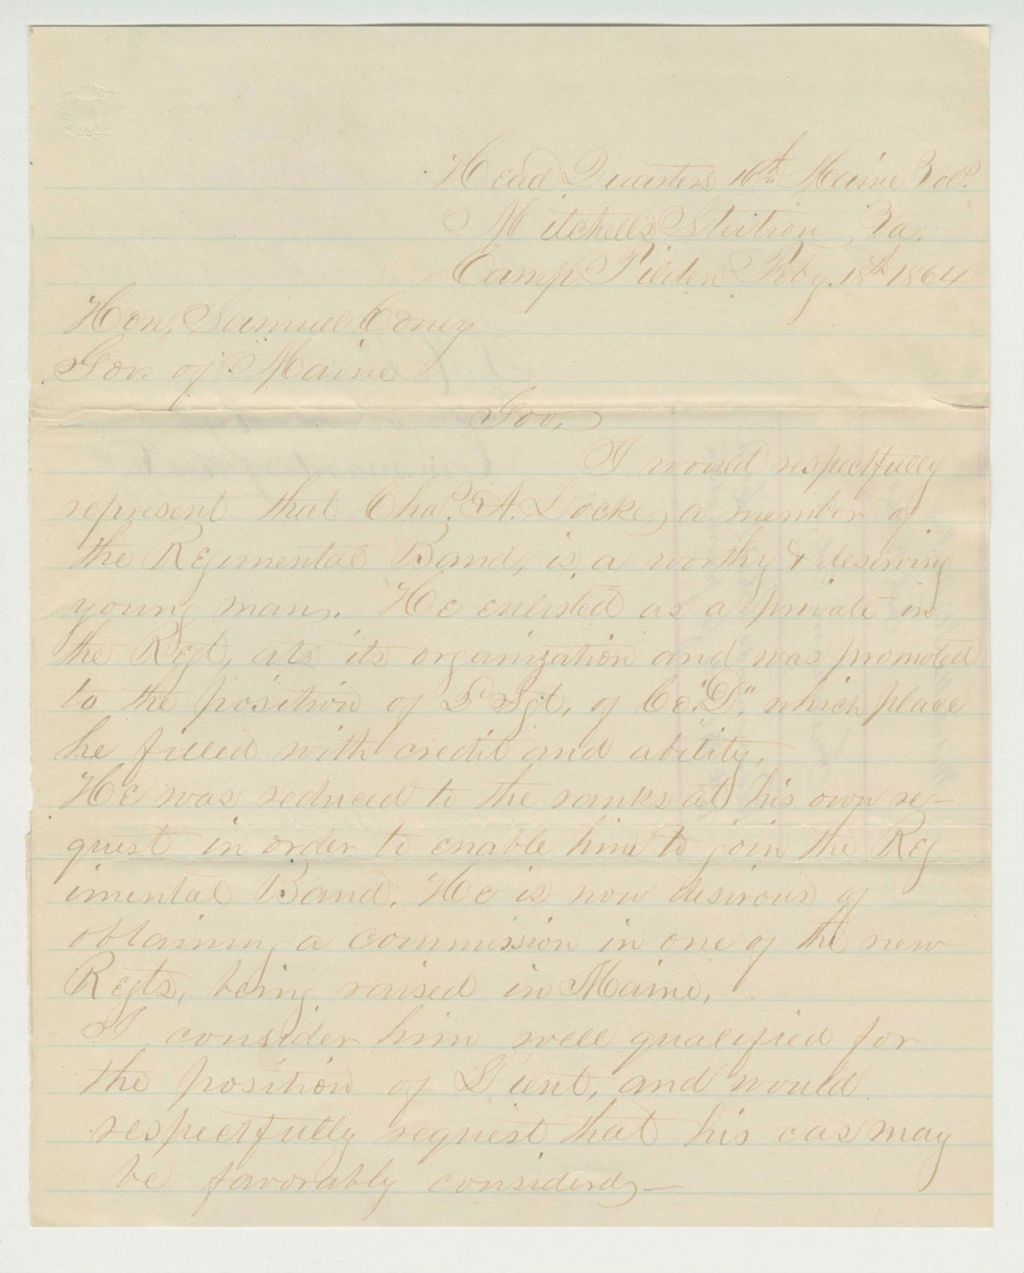 Head Quarters 16th Maine Vol.
Mitchells Station, Va.
Camp Tilden Feby. 18th 1864
Hon, Samuel Coney
Gov. of Maine
Gov,
I would respectfully
represent that Chas. A. Locke, a member of
the Regimental Band, is a worthy & deserving
young man. He enlisted as a private in
the Regt, at its organization and was promoted
to the position of Sgt, of Co. "D", which place
he filled with credit and ability,
He was reduced to the ranks at his own re-
quest in order to enable him to join the Reg-
imental Band. He is now desirous of
obtaining a commission in one of the new
Regts, being raised in Maine,
I consider him well qualified for
the position of Lieut, and would
respectfully request that his cas may
be favorably considerd,—